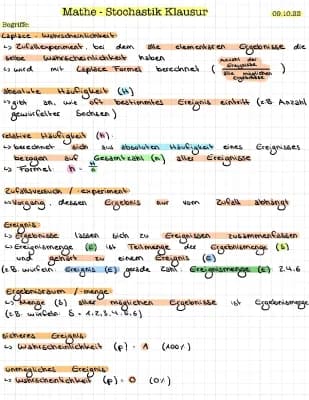 Mathe - Stochastik Klausur 09.10.22
Begriffe:
Laplace - Wahrscheinlichkeit
↳ Zufallsexperiment, bei dem alle elementaren Ergebnisse die
selbe Wahrscheinlichkeit haben
↳ wird mit Laplace Formel berechnet (Anzahl der Ergebnisse / alle möglichen Ergebnisse)
absolute Häufigkeit (H)
↳ gibt an, wie oft bestimmtes Ereignis eintrifft (z.B. Anzahl
gewürfelter Sechsen)
relative Häufigkeit (h):
↳ berechnet sich aus absoluten Häufigkeit eines Ereignisses
bezogen auf Gesamtzahl (n) aller Ereignisse
↳ Formel: h = H/n
Zufallsversuch / experiment:
↳ Vorgang, dessen Ergebnis nur vom Zufall abhängt
Ereignis:
↳ Ergebnisse lassen sich zu Ereignissen zusammenfassen
↳ Ereignismenge (E) ist Teilmenge der Ergebnismenge (S)
und gehört zu einem Ereignis (E)
(z.B. würfeln: Ereignis (E): gerade Zahl, Ereignismenge (E): 2,4,6
Ergebnisraum / -menge:
↳ Menge (S) aller möglichen Ergebnisse ist Ergebnismenge
(z.B. würfeln: S = 1,2,3,4,5,6)
sicheres Ereignis
↳ Wahrscheinlichkeit (p) = 1 (100%)
unmögliches Ereignis
↳ Wahrscheinlichkeit (p) = 0 (0%)